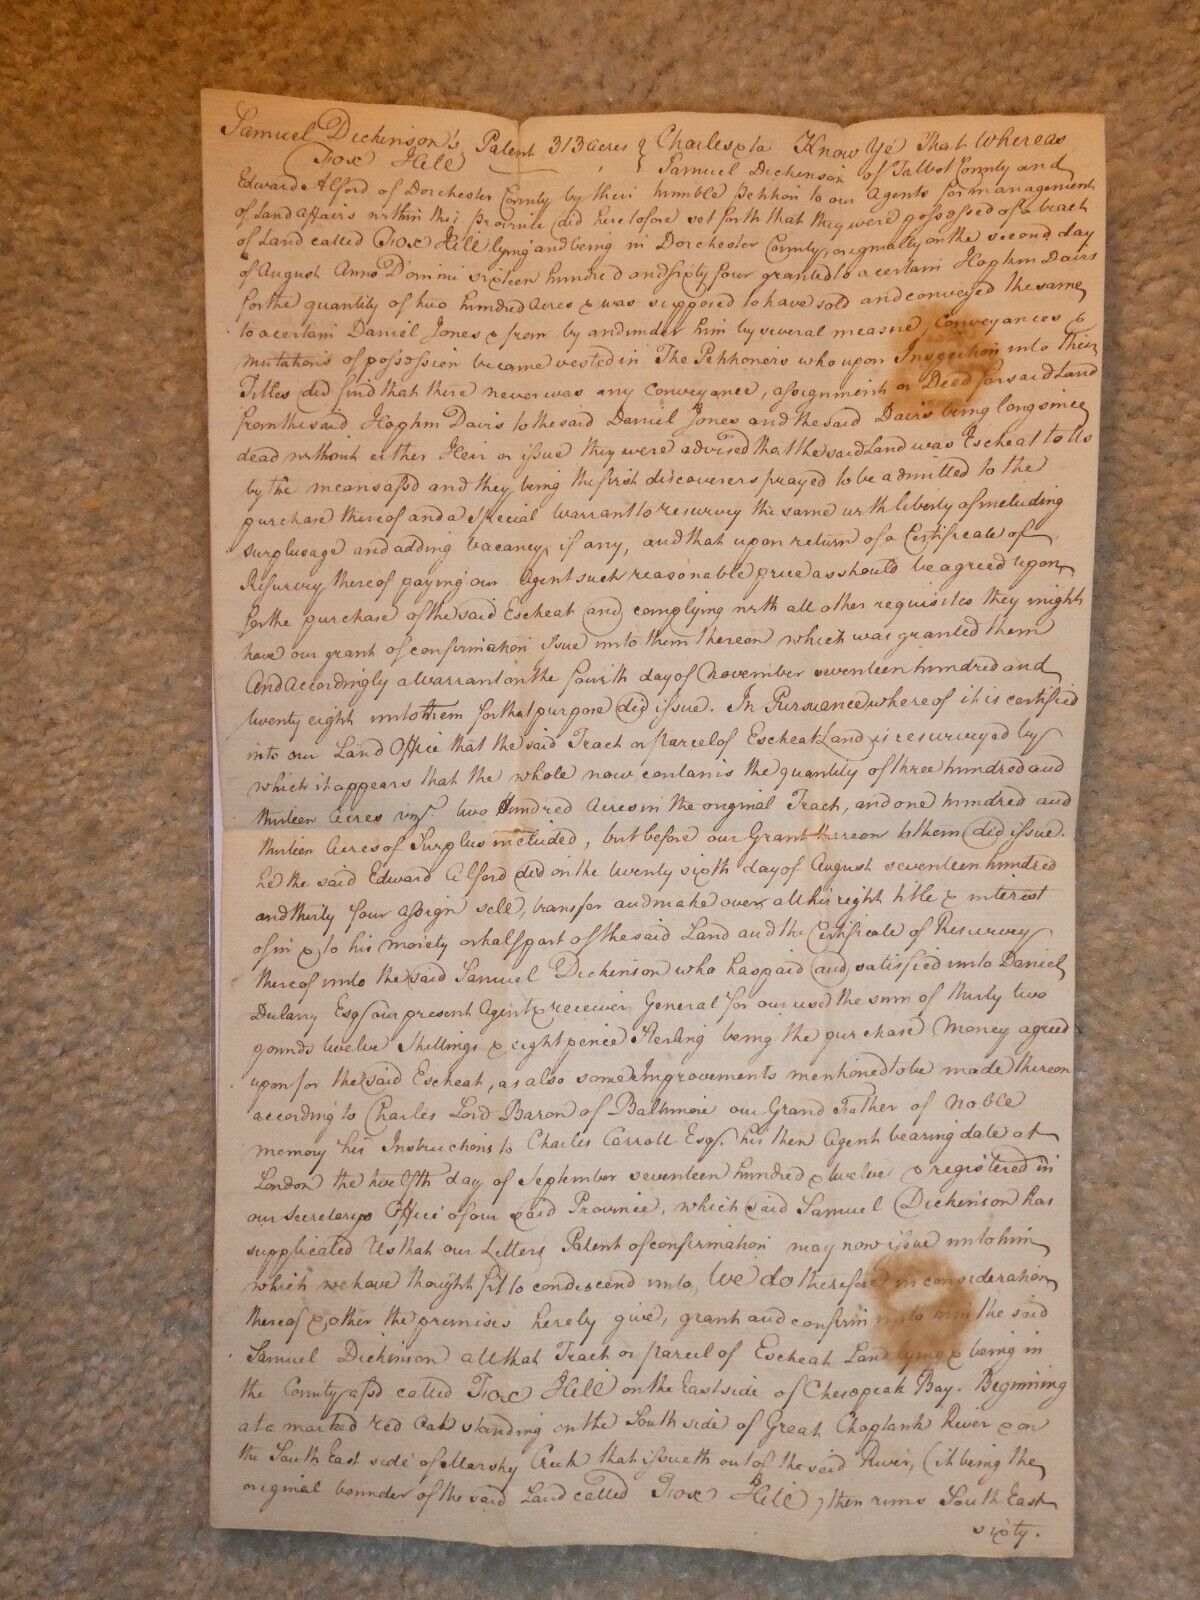 Samuel Dickinson's Patent 313 acres } Charles &ca Know Ye That Whereas
Fox Hill } Samuel Dickinson of Talbot County and
Edward Alford of Dorchester County by their humble petition to our Agents for management
of Land affairs within this province did heretofore set forth that they were possessed of a tract
of Land called Fox Hill lying and being in Dorchester County, originally on the second day
of August Anno Domini sixteen hundred and sixty four granted to a certain Hopkin Davis
for the quantity of two hundred acres & was supposed to have sold and conveyed the same
to a certain Daniel Jones & from by and under him by several measne conveyances &
mutations of possession became vested in The Petitioners who upon Inspection into their
Titles did find that there never was any conveyance, assignment or Deed for said Land
from the said Hopkin Davis to the said Daniel Jones and the said Davis being long since
dead without either Heir or issue they were advised that the said Land was Escheat to Us
by the means afsd and they being the first discoverers prayed to be admitted to the
purchase thereof and a special warrant to resurvey the same with liberty of including
surplusage and adding vacancy, if any, and that upon return of a Certificate of
Resurvey thereof paying our Agent such reasonable price as should be agreed upon
for the purchase of the said Escheat and complying with all other requisites they might
have our grant of confirmation issue unto them thereon which was granted them
And accordingly a warrant on the fourth day of November seventeen hundred and
twenty eight unto them for that purpose did issue. In Pursuance whereof it is certified
into our Land Office that the said Tract or parcel of Escheat Land is resurveyed by
which it appears that the whole now contains the quantity of three hundred and
thirteen acres vizt. two hundred acres in the original Tract, and one hundred and
thirteen Acres of Surplus included, but before our Grant thereon to them did issue.
he the said Edward Alford did on the twenty sixth day of August seventeen hundred
and thirty four assign sell, transfer and make over all his right title & interest
of in & to his moiety or half part of the said Land and the Certificate of Resurvey
thereof unto the said Samuel Dickinson who has paid and satisfied unto Daniel
Dulany Esqr our present Agent & receiver General for our use the sum of thirty two
pounds twelve shillings & eight pence Sterling being the purchase Money agreed
upon for the said Escheat, as also some Improvements mentioned to be made thereon
according to Charles Lord Baron of Baltimore our Grand Father of Noble
memory his Instructions to Charles Carroll Esqr. his then Agent bearing date at
London the twelfth day of September seventeen hundred & twelve & registered in
our Secretarys Office of our said Province, which said Samuel Dickinson has
supplicated Us that our Letters Patent of confirmation may now issue unto him
which we have thought fit to condescend unto, We do therefore in consideration
thereof & other the premises hereby give, grant and confirm unto him the said
Samuel Dickinson all that Tract or parcel of Escheat Land lying & being in
the County afsd called Fox Hill on the East side of Chesopeak Bay. Beginning
at a marked red oak standing on the South side of Great Choptank River & on
the South East side of Marshy Creek that issueth out of the said River, (it being the
original bounder of the said Land called Fox Hill, then runs South East
sixty.